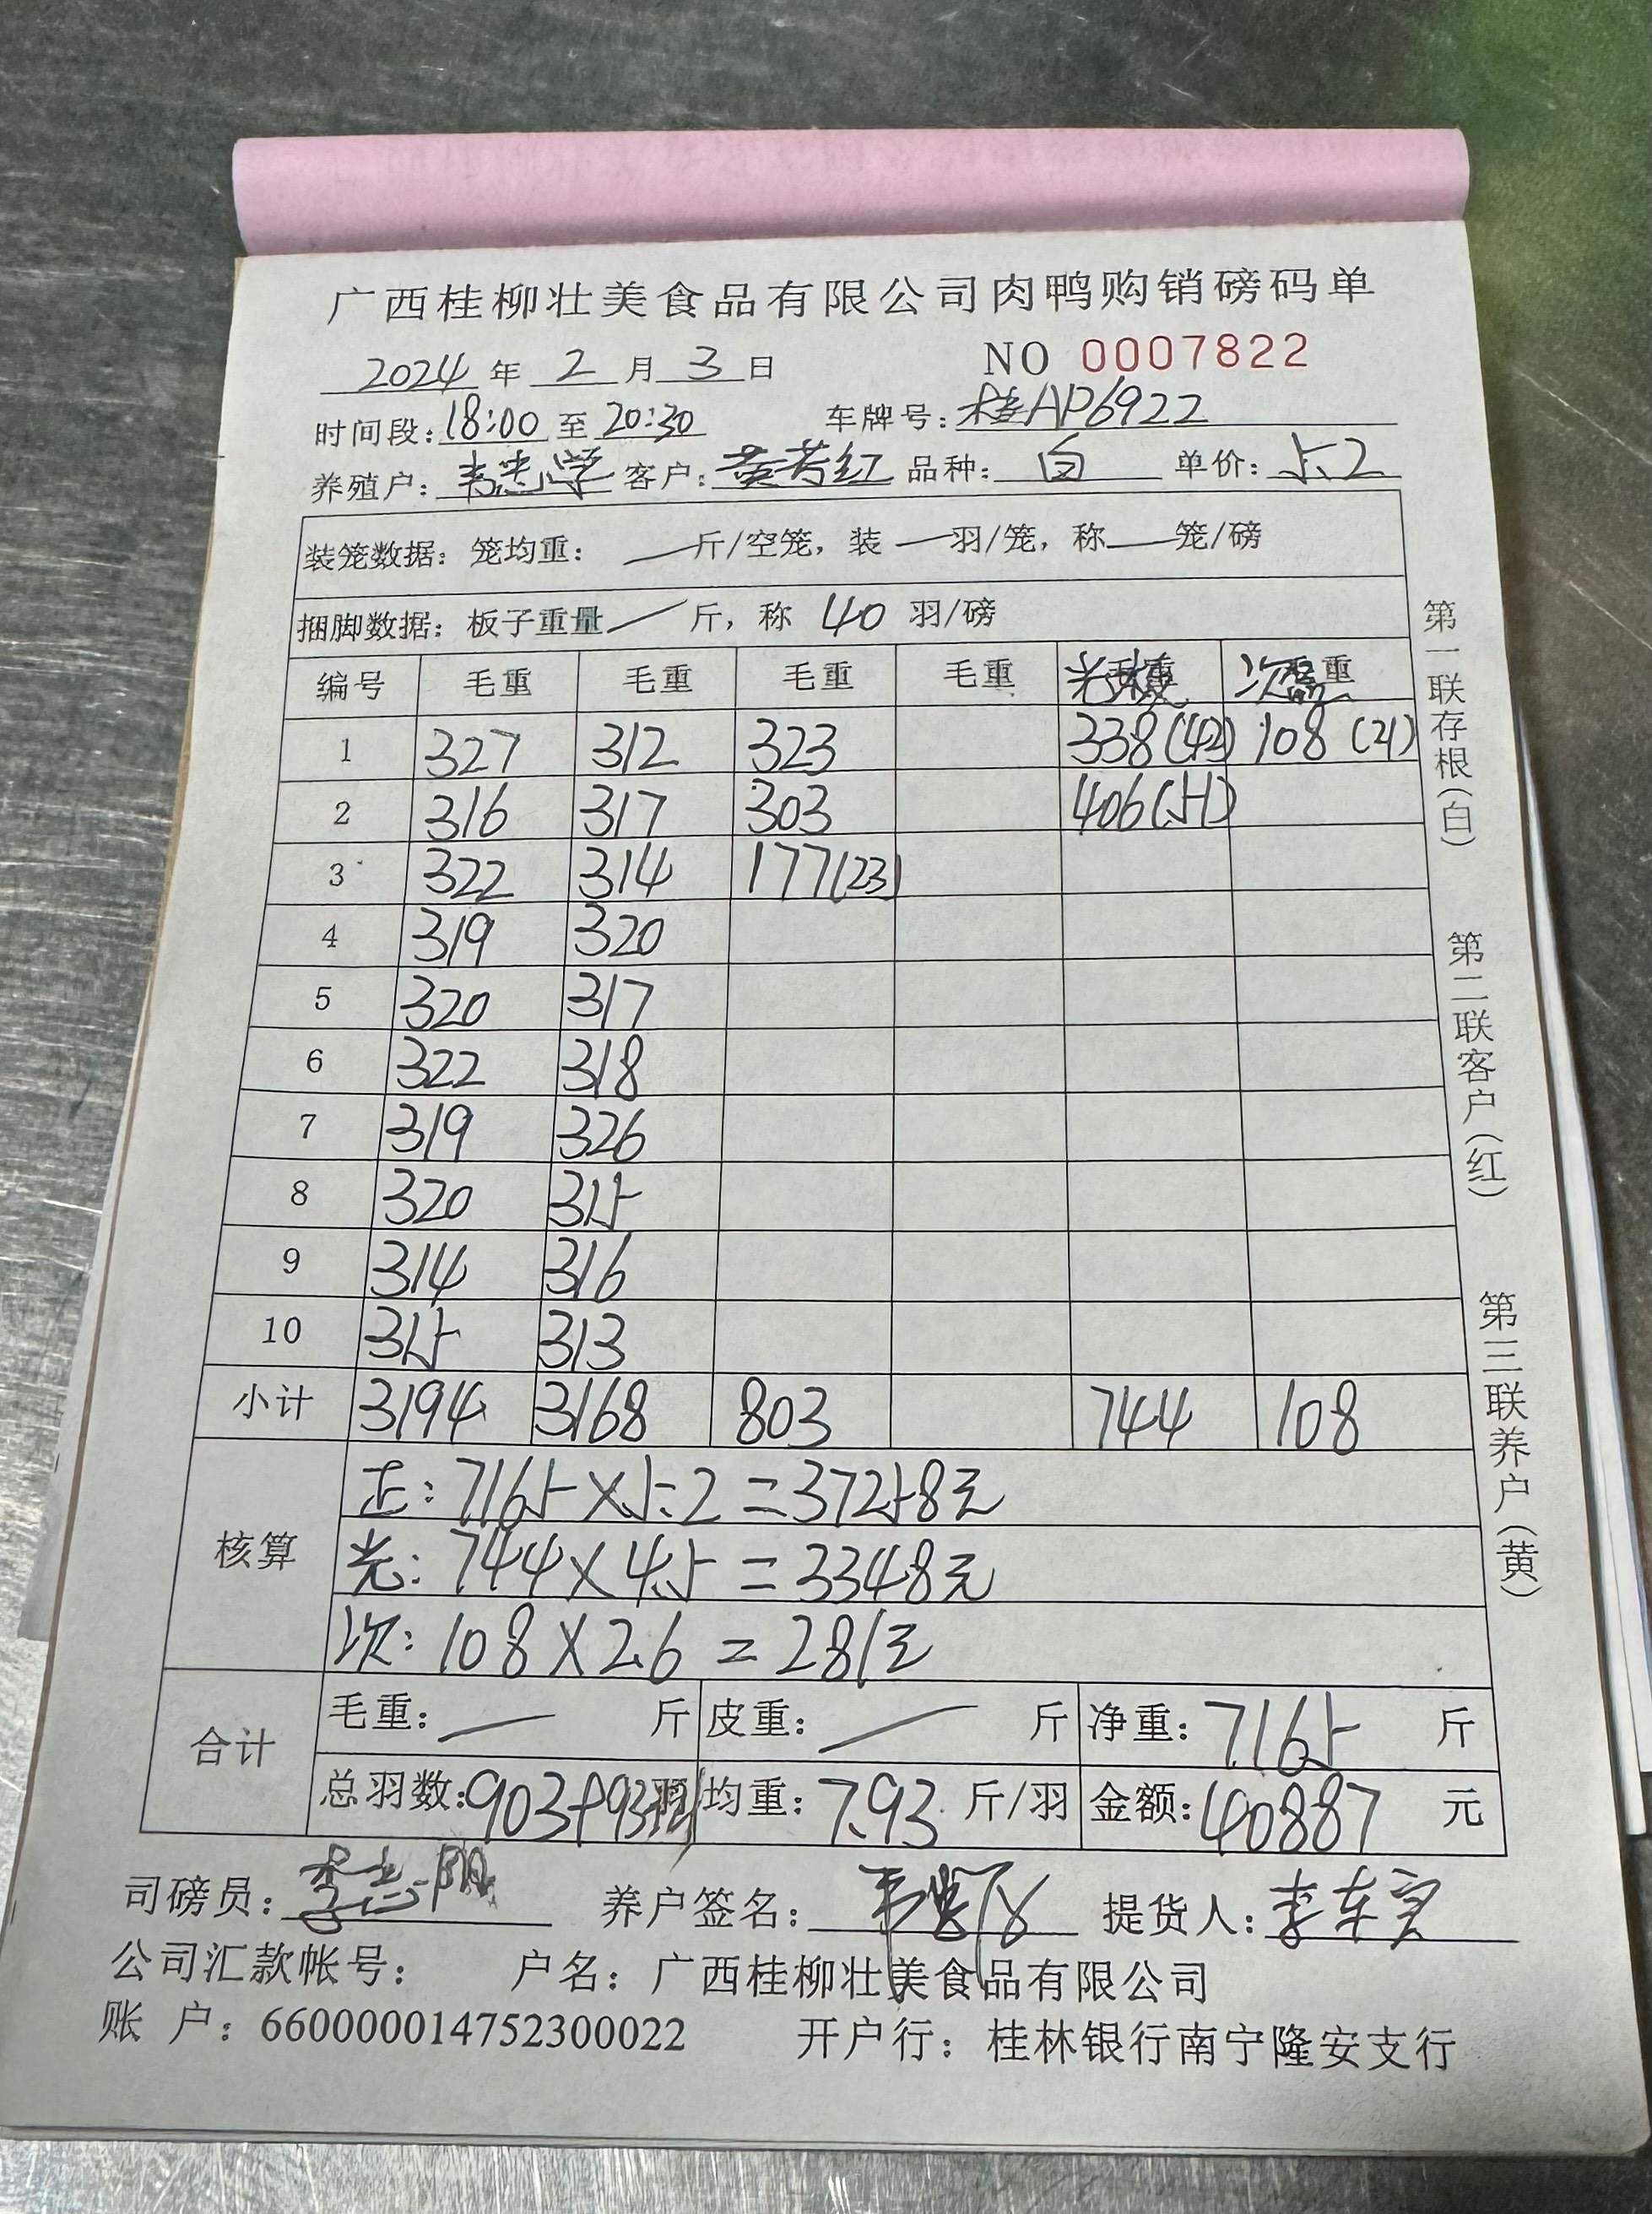 广西桂柳壮美食品有限公司肉鸭购销磅码单
2024年2月3日 NO 0007822
时间段:18:00至20:30 车牌号:桂AP6922
养殖户:韦志学 客户:黄芳红 品种:白 单价:5.2
装笼数据：笼均重：—斤/空笼，装—羽/笼，称—笼/磅
捆脚数据：板子重量/斤，称 40 羽/磅
编号 毛重 毛重 毛重 毛重
1 327 312 323 338(42) 108(21)
2 316 317 303 406(51)
3 322 314 177(23)
4 319 320
5 320 317
6 322 318
7 319 326
8 320 315
9 314 316
10 315 313
小计 3194 3168 803 744 108
核算
正：7165×5.2=37258元
光：744×4.5=3348元
次：108×2.6=281元
合计
毛重：—斤 皮重：—斤 净重：7165斤
总羽数:903+93 均重：7.93斤/羽 金额:40887元
司磅员： 养户签名： 提货人:李东
公司汇款帐号： 户名：广西桂柳壮美食品有限公司
账 户：660000014752300022 开户行：桂林银行南宁隆安支行
第一联存根(白)
第二联客户(红)
第三联养户(黄)